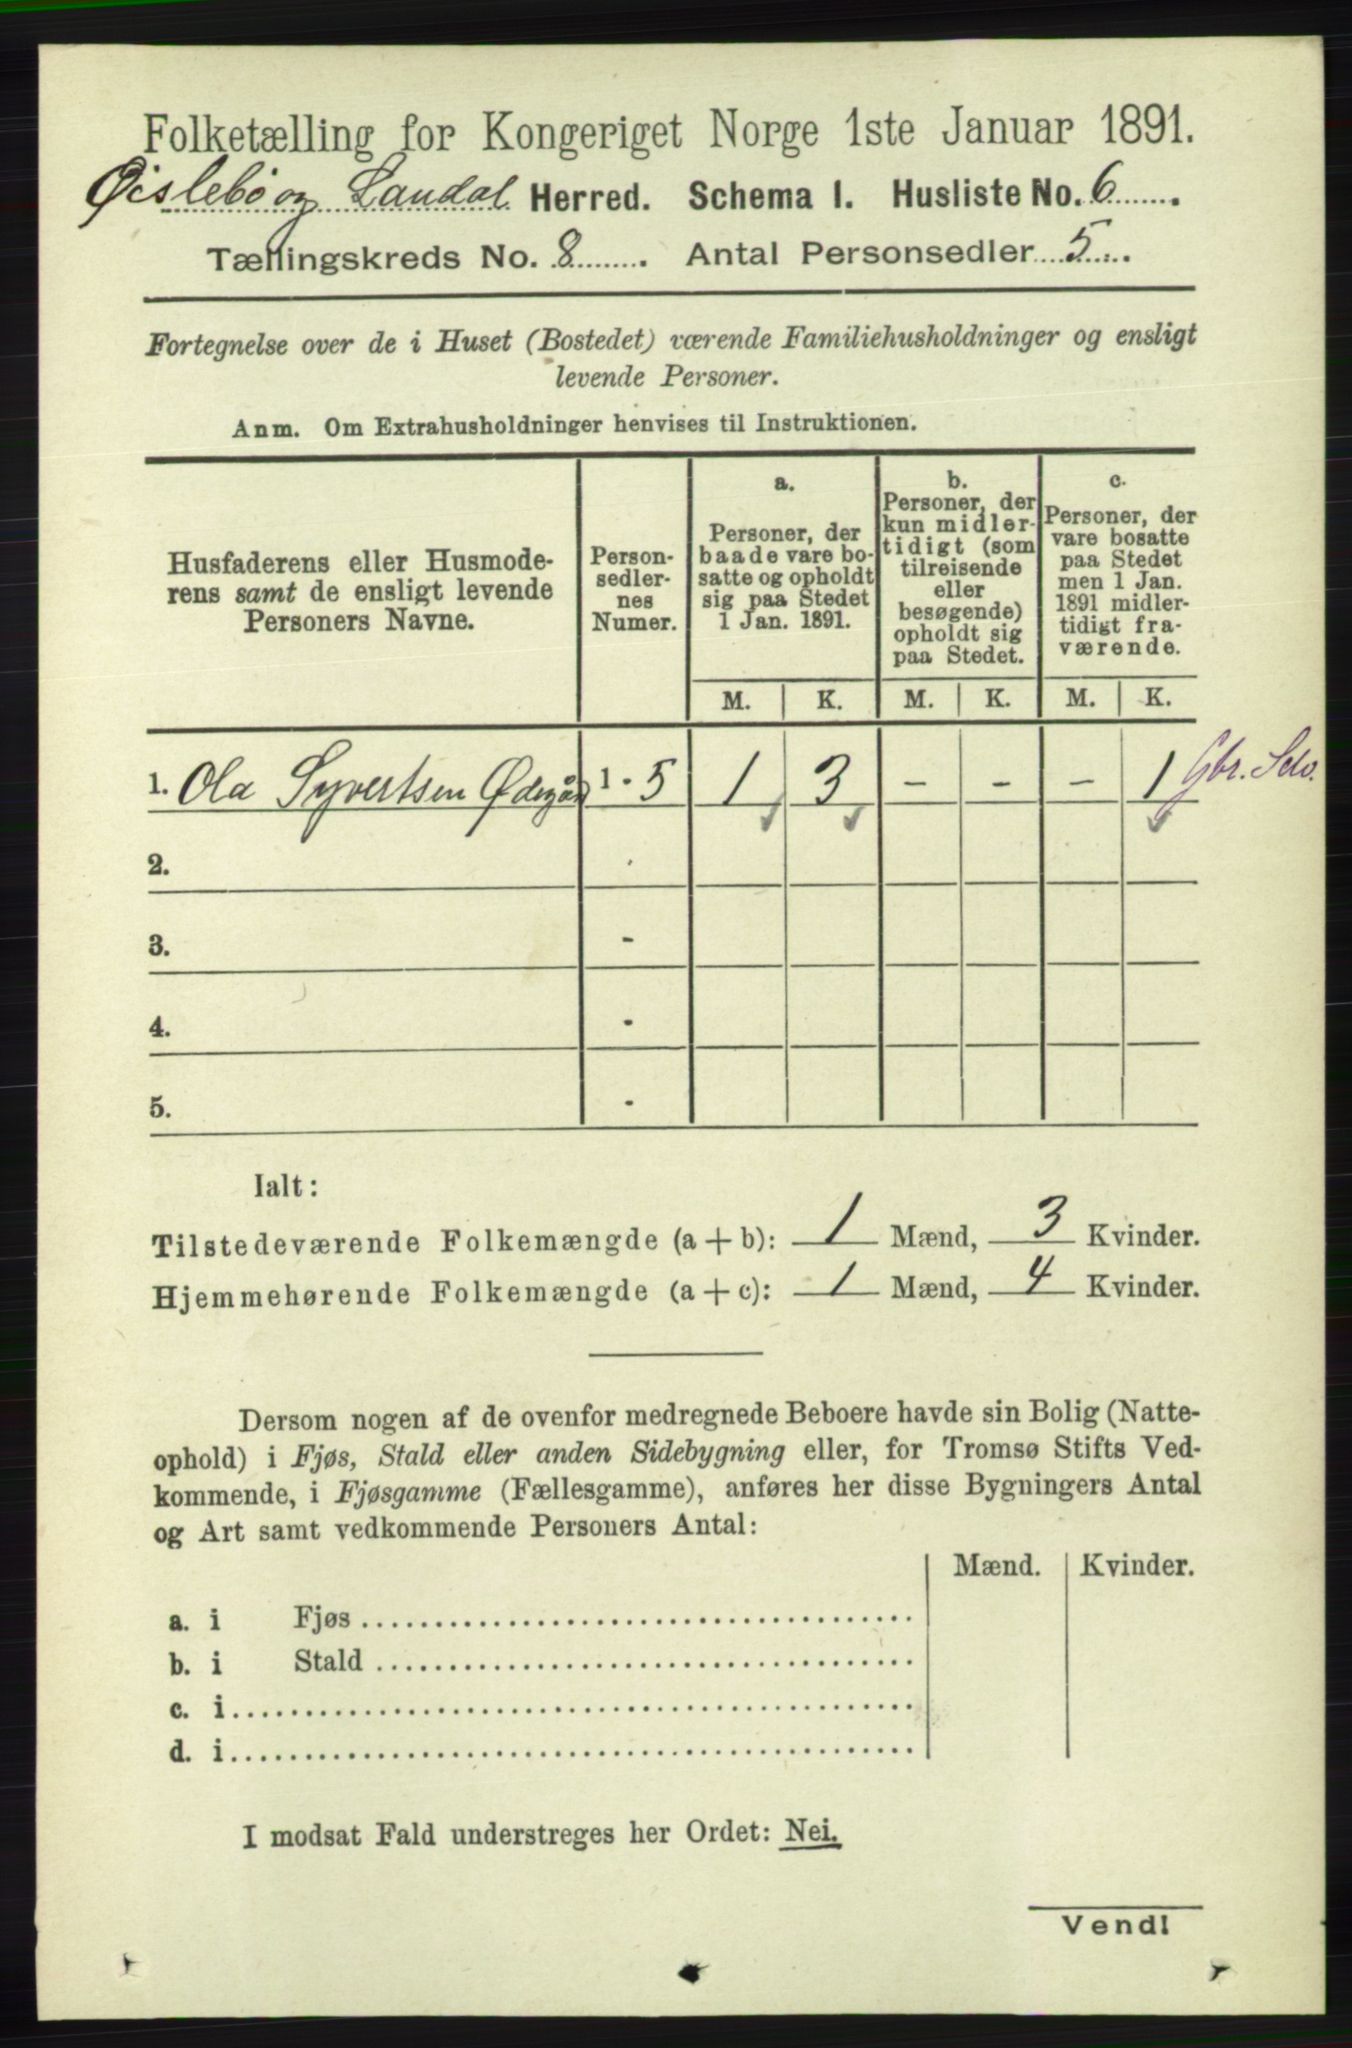 Folketælling for Kongeriget Norge 1ste Januar 1891.
Øislebø og Laudal Herred. Schema I. Husliste No. 6
Tællingskreds No. 8. Antal Personsedler 5.
Fortegnelse over de i Huset (Bostedet) værende Familiehusholdninger og ensligt
levende Personer.
Anm. Om Extrahusholdninger henvises til Instruktionen.
Husfaderens eller Husmode-
rens samt de ensligt levende
Personers Navne.
Person-
sedler-
nes
Numer.
a.
Personer, der
baade vare bo-
satte og opholdt
sig paa Stedet
1 Jan. 1891.
b.
Personer, der
kun midler-
tidigt (som
tilreisende
eller
besøgende)
opholdt sig
paa Stedet.
c.
Personer, der
vare bosatte
paa Stedet
men 1 Jan.
1891 midler-
tidigt fra-
værende.
M. K. M. K. M. K.
1. Ola Syvertsen Ødegård 1 - 5 1 3 - - - 1 Gbr. Selv.
2.
3. -
4. -
5. -
Ialt:
Tilstedeværende Folkemængde (a + b): 1 Mænd, 3 Kvinder.
Hjemmehørende Folkemængde (a + c): 1 Mænd, 4 Kvinder.
Dersom nogen af de ovenfor medregnede Beboere havde sin Bolig (Natte-
ophold) i Fjøs, Stald eller anden Sidebygning eller, for Tromsø Stifts Ved-
kommende, i Fjøsgamme (Fællesgamme), anføres her disse Bygningers Antal
og Art samt vedkommende Personers Antal:
Mænd. Kvinder.
a. i Fjøs
b. i Stald
c. i
d. i
I modsat Fald understreges her Ordet: Nei.
Vend!